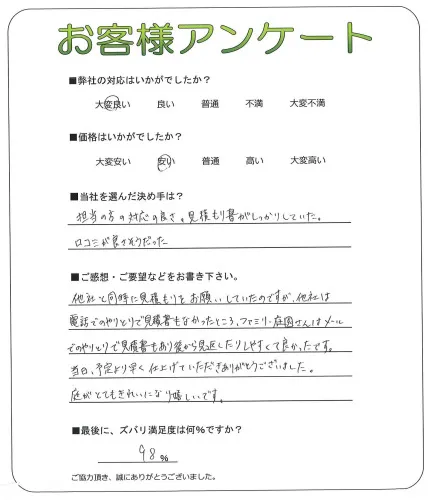 お客様アンケート
■弊社の対応はいかがでしたか?
大変良い 良い 普通 不満 大変不満
■価格はいかがでしたか?
大変安い 安い 普通 高い 大変高い
■当社を選んだ決め手は?
担当の方の対応の良さ。見積もり書がしっかりしていた。
口コミが良さそうだった
■ご感想・ご要望などをお書き下さい。
他社と同時に見積もりをお願いしていたのですが、他社は
電話でのやりとりで見積書もなかったところ、ファミリー庭園さんはメール
でのやりとりで見積書もあり後から見返したりしやすくて良かったです。
当日、予定より早く仕上げていただきありがとうございました。
庭がとてもきれいになり嬉しいです。
■最後に、ズバリ満足度は何%ですか?
98%
ご協力頂き、誠にありがとうございました。